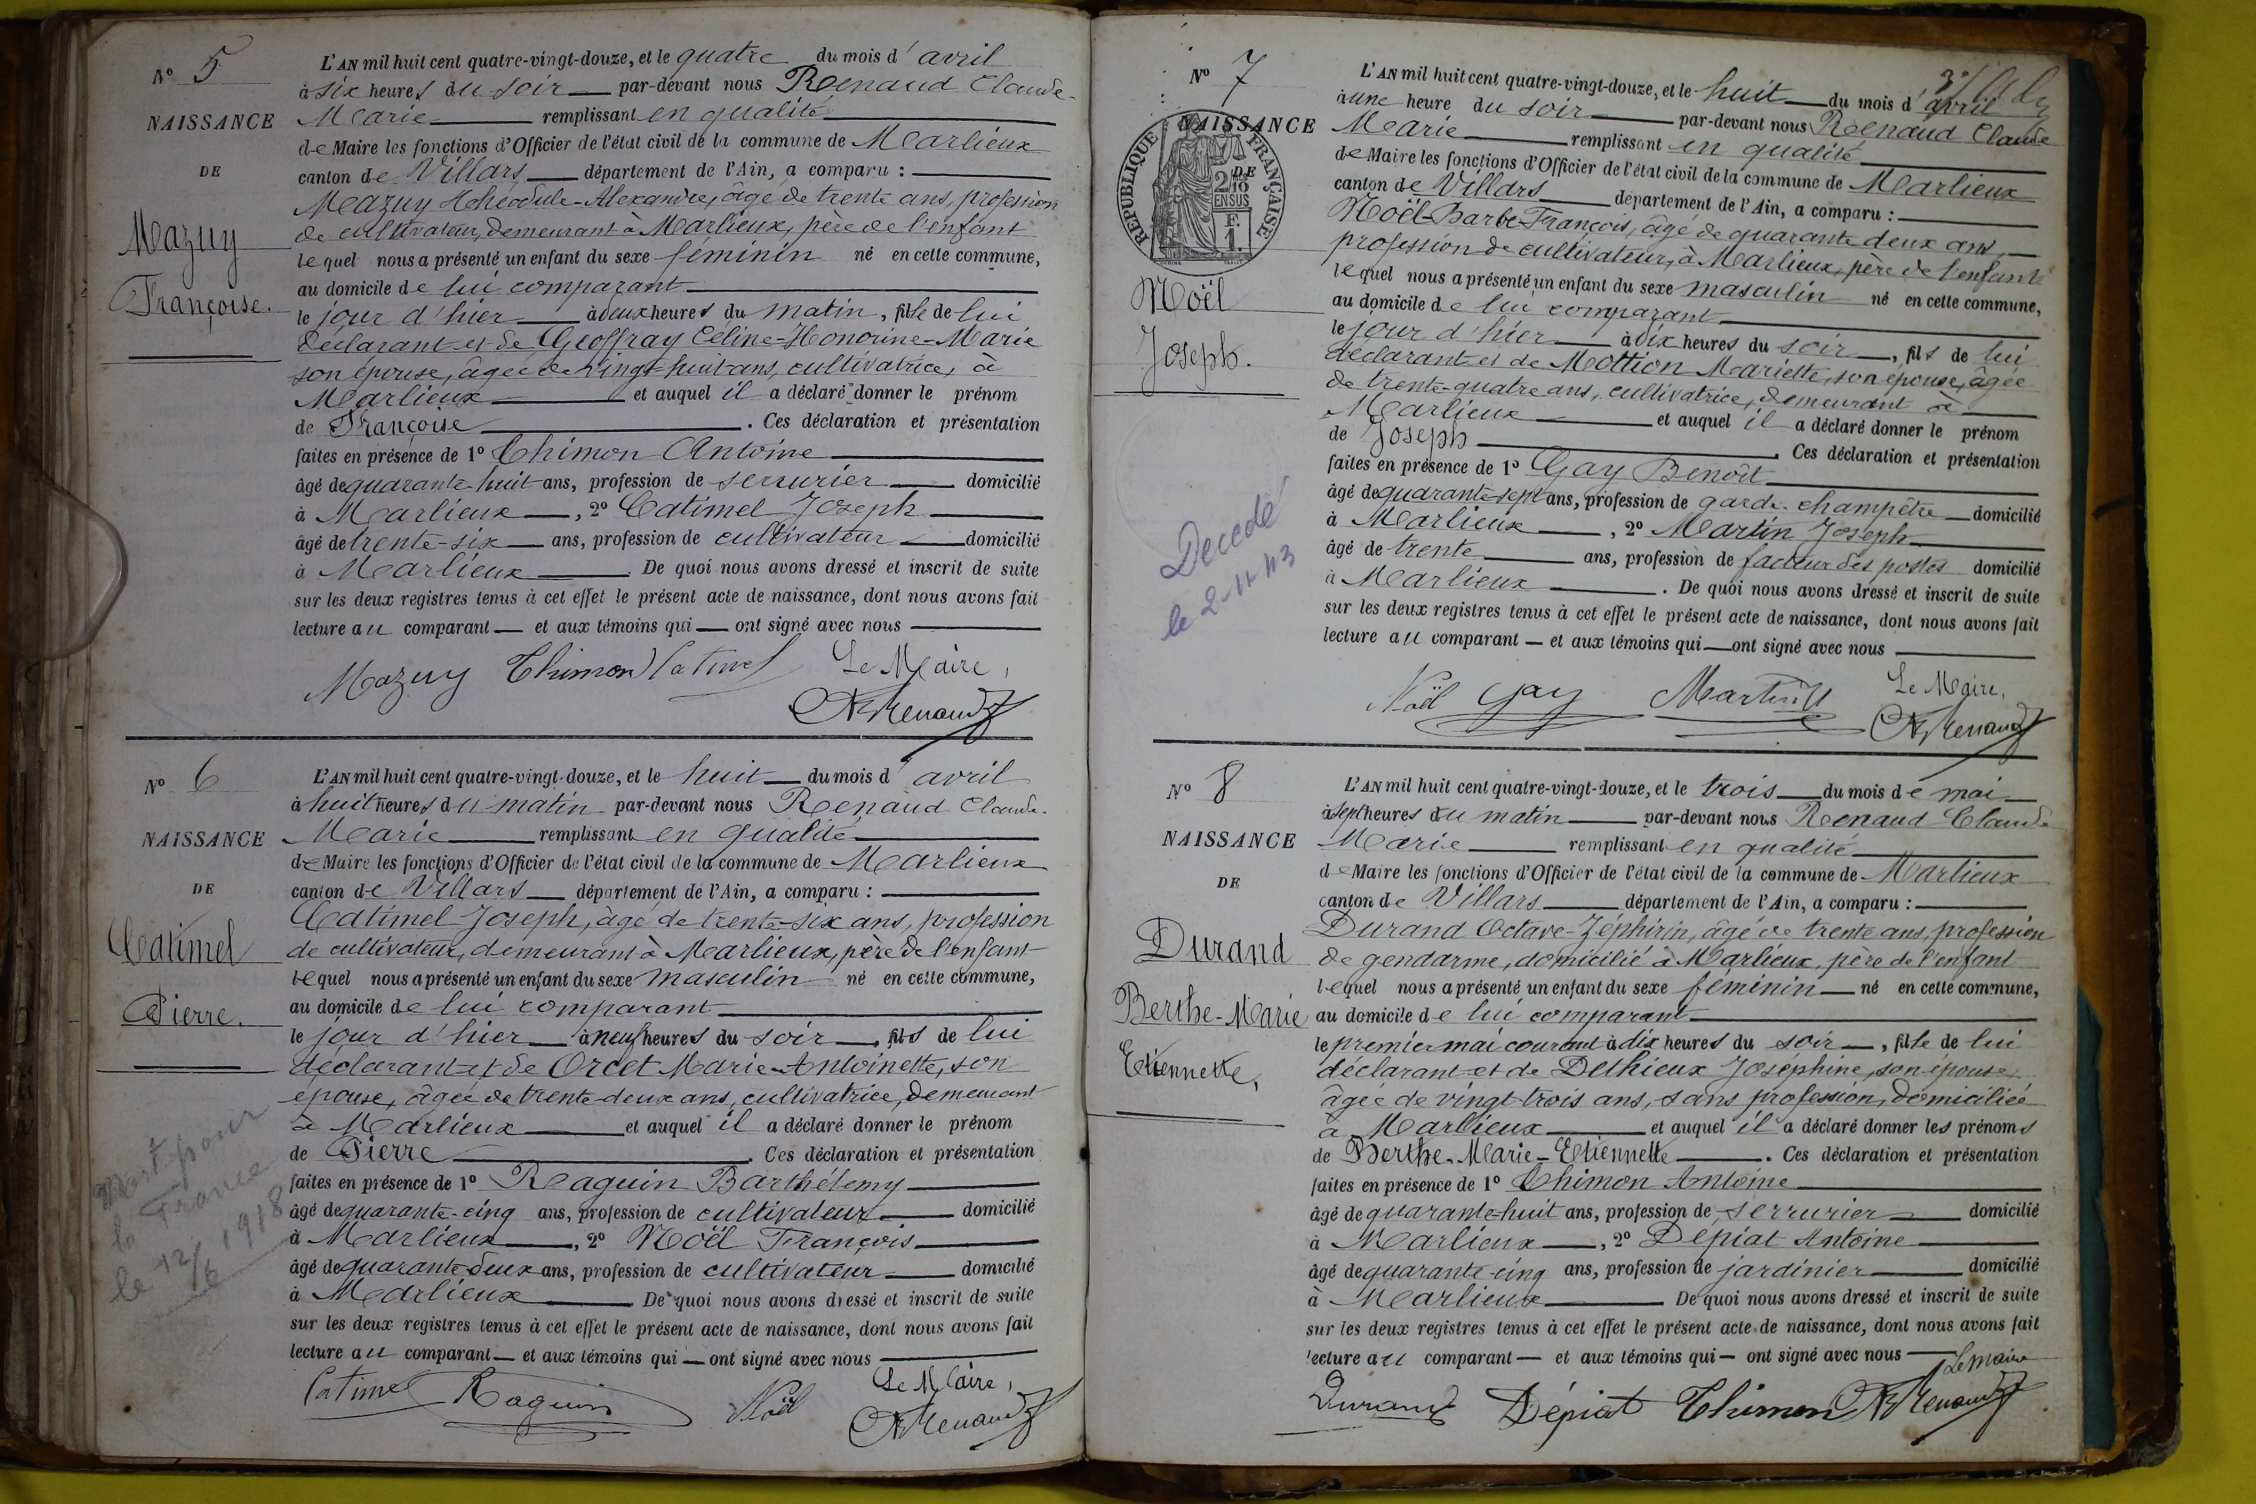 N° 5
NAISSANCE
DE
Mazuy
Françoise.
L'AN mil huit cent quatre-vingt-douze, et le quatre du mois d'avril
à six heures du soir par-devant nous Renaud Claude-
Marie remplissant en qualité
de Maire les fonctions d'Officier de l'état civil de la commune de Marlieux
canton de Villars département de l'Ain, a comparu :
Mazuy Théodule-Alexandre, âgé de trente ans, profession
de cultivateur, demeurant à Marlieux, père de l'enfant
lequel nous a présenté un enfant du sexe féminin né en cette commune,
au domicile de lui comparant
le jour d'hier à deux heures du matin, fille de lui
déclarant et de Geoffray Céline-Honorine-Marie
son épouse, âgée de vingt-huit ans, cultivatrice, à
Marlieux et auquel il a déclaré donner le prénom
de Françoise. Ces déclaration et présentation
faites en présence de 1° Thimon Antoine
âgé de quarante-huit ans, profession de serrurier domicilié
à Marlieux, 2° Catimel Joseph
âgé de trente-six ans, profession de cultivateur domicilié
à Marlieux De quoi nous avons dressé et inscrit de suite
sur les deux registres tenus à cet effet le présent acte de naissance, dont nous avons fait
lecture au comparant et aux témoins qui ont signé avec nous
Mazuy Thimon Catimel Le Maire,
Renaud
N° 6
NAISSANCE
DE
Catimel
Pierre.
Mort pour
la France
le 12/6 1918
L'AN mil huit cent quatre-vingt-douze, et le huit du mois d'avril
à huit heures du matin par-devant nous Renaud Claude-
Marie remplissant en qualité
de Maire les fonctions d'Officier de l'état civil de la commune de Marlieux
canton de Villars département de l'Ain, a comparu :
Catimel Joseph, âgé de trente-six ans, profession
de cultivateur, demeurant à Marlieux, père de l'enfant
lequel nous a présenté un enfant du sexe masculin né en cette commune,
au domicile de lui comparant
le jour d'hier à neuf heures du soir, fils de lui
déclarant et de Orcet Marie-Antoinette, son
épouse, âgée de trente-deux ans, cultivatrice, demeurant
à Marlieux et auquel il a déclaré donner le prénom
de Pierre. Ces déclaration et présentation
faites en présence de 1° Raguin Barthélemy
âgé de quarante-cinq ans, profession de cultivateur domicilié
à Marlieux, 2° Noël François
âgé de quarante-deux ans, profession de cultivateur domicilié
à Marlieux De quoi nous avons dressé et inscrit de suite
sur les deux registres tenus à cet effet le présent acte de naissance, dont nous avons fait
lecture au comparant et aux témoins qui ont signé avec nous
Catimel Raguin Noël Le Maire,
Renaud
N° 7
NAISSANCE
DE
RÉPUBLIQUE FRANÇAISE
2/10
EN SUS
F.
1.
Noël
Joseph.
Décédé
le 2-11-43
L'AN mil huit cent quatre-vingt-douze, et le huit du mois d'avril
à une heure du soir par-devant nous Renaud Claude
Marie remplissant en qualité
de Maire les fonctions d'Officier de l'état civil de la commune de Marlieux
canton de Villars département de l'Ain, a comparu :
Noël-Barbe-François, âgé de quarante deux ans,
profession de cultivateur, à Marlieux, père de l'enfant
lequel nous a présenté un enfant du sexe masculin né en cette commune,
au domicile de lui comparant
le jour d'hier à dix heures du soir, fils de lui
déclarant et de Mottion Mariette, son épouse, âgée
de trente-quatre ans, cultivatrice, demeurant à
Marlieux et auquel il a déclaré donner le prénom
de Joseph. Ces déclaration et présentation
faites en présence de 1° Gay Benoît
âgé de quarante-sept ans, profession de garde-champêtre domicilié
à Marlieux, 2° Martin Joseph
âgé de trente ans, profession de facteur des postes domicilié
à Marlieux. De quoi nous avons dressé et inscrit de suite
sur les deux registres tenus à cet effet le présent acte de naissance, dont nous avons fait
lecture au comparant et aux témoins qui ont signé avec nous
Noël Gay Martin Le Maire,
Renaud
N° 8
NAISSANCE
DE
Durand
Berthe-Marie
Etiennette,
L'AN mil huit cent quatre-vingt-douze, et le trois du mois de mai
à sept heures du matin par-devant nous Renaud Claude
Marie remplissant en qualité
de Maire les fonctions d'Officier de l'état civil de la commune de Marlieux
canton de Villars département de l'Ain, a comparu :
Durand Octave-Zéphirin, âgé de trente ans, profession
de gendarme, domicilié à Marlieux, père de l'enfant
lequel nous a présenté un enfant du sexe féminin né en cette commune,
au domicile de lui comparant
le premier mai courant à dix heures du soir, fille de lui
déclarant et de Dethieux Joséphine, son épouse,
âgée de vingt-trois ans, sans profession, domiciliée
à Marlieux et auquel il a déclaré donner les prénoms
de Berthe-Marie-Etiennette. Ces déclaration et présentation
faites en présence de 1° Thimon Antoine
âgé de quarante-huit ans, profession de serrurier domicilié
à Marlieux, 2° Dépiat Antoine
âgé de quarante-cinq ans, profession de jardinier domicilié
à Marlieux De quoi nous avons dressé et inscrit de suite
sur les deux registres tenus à cet effet le présent acte de naissance, dont nous avons fait
lecture au comparant et aux témoins qui ont signé avec nous
Le Maire
Durand Dépiat Thimon Renaud